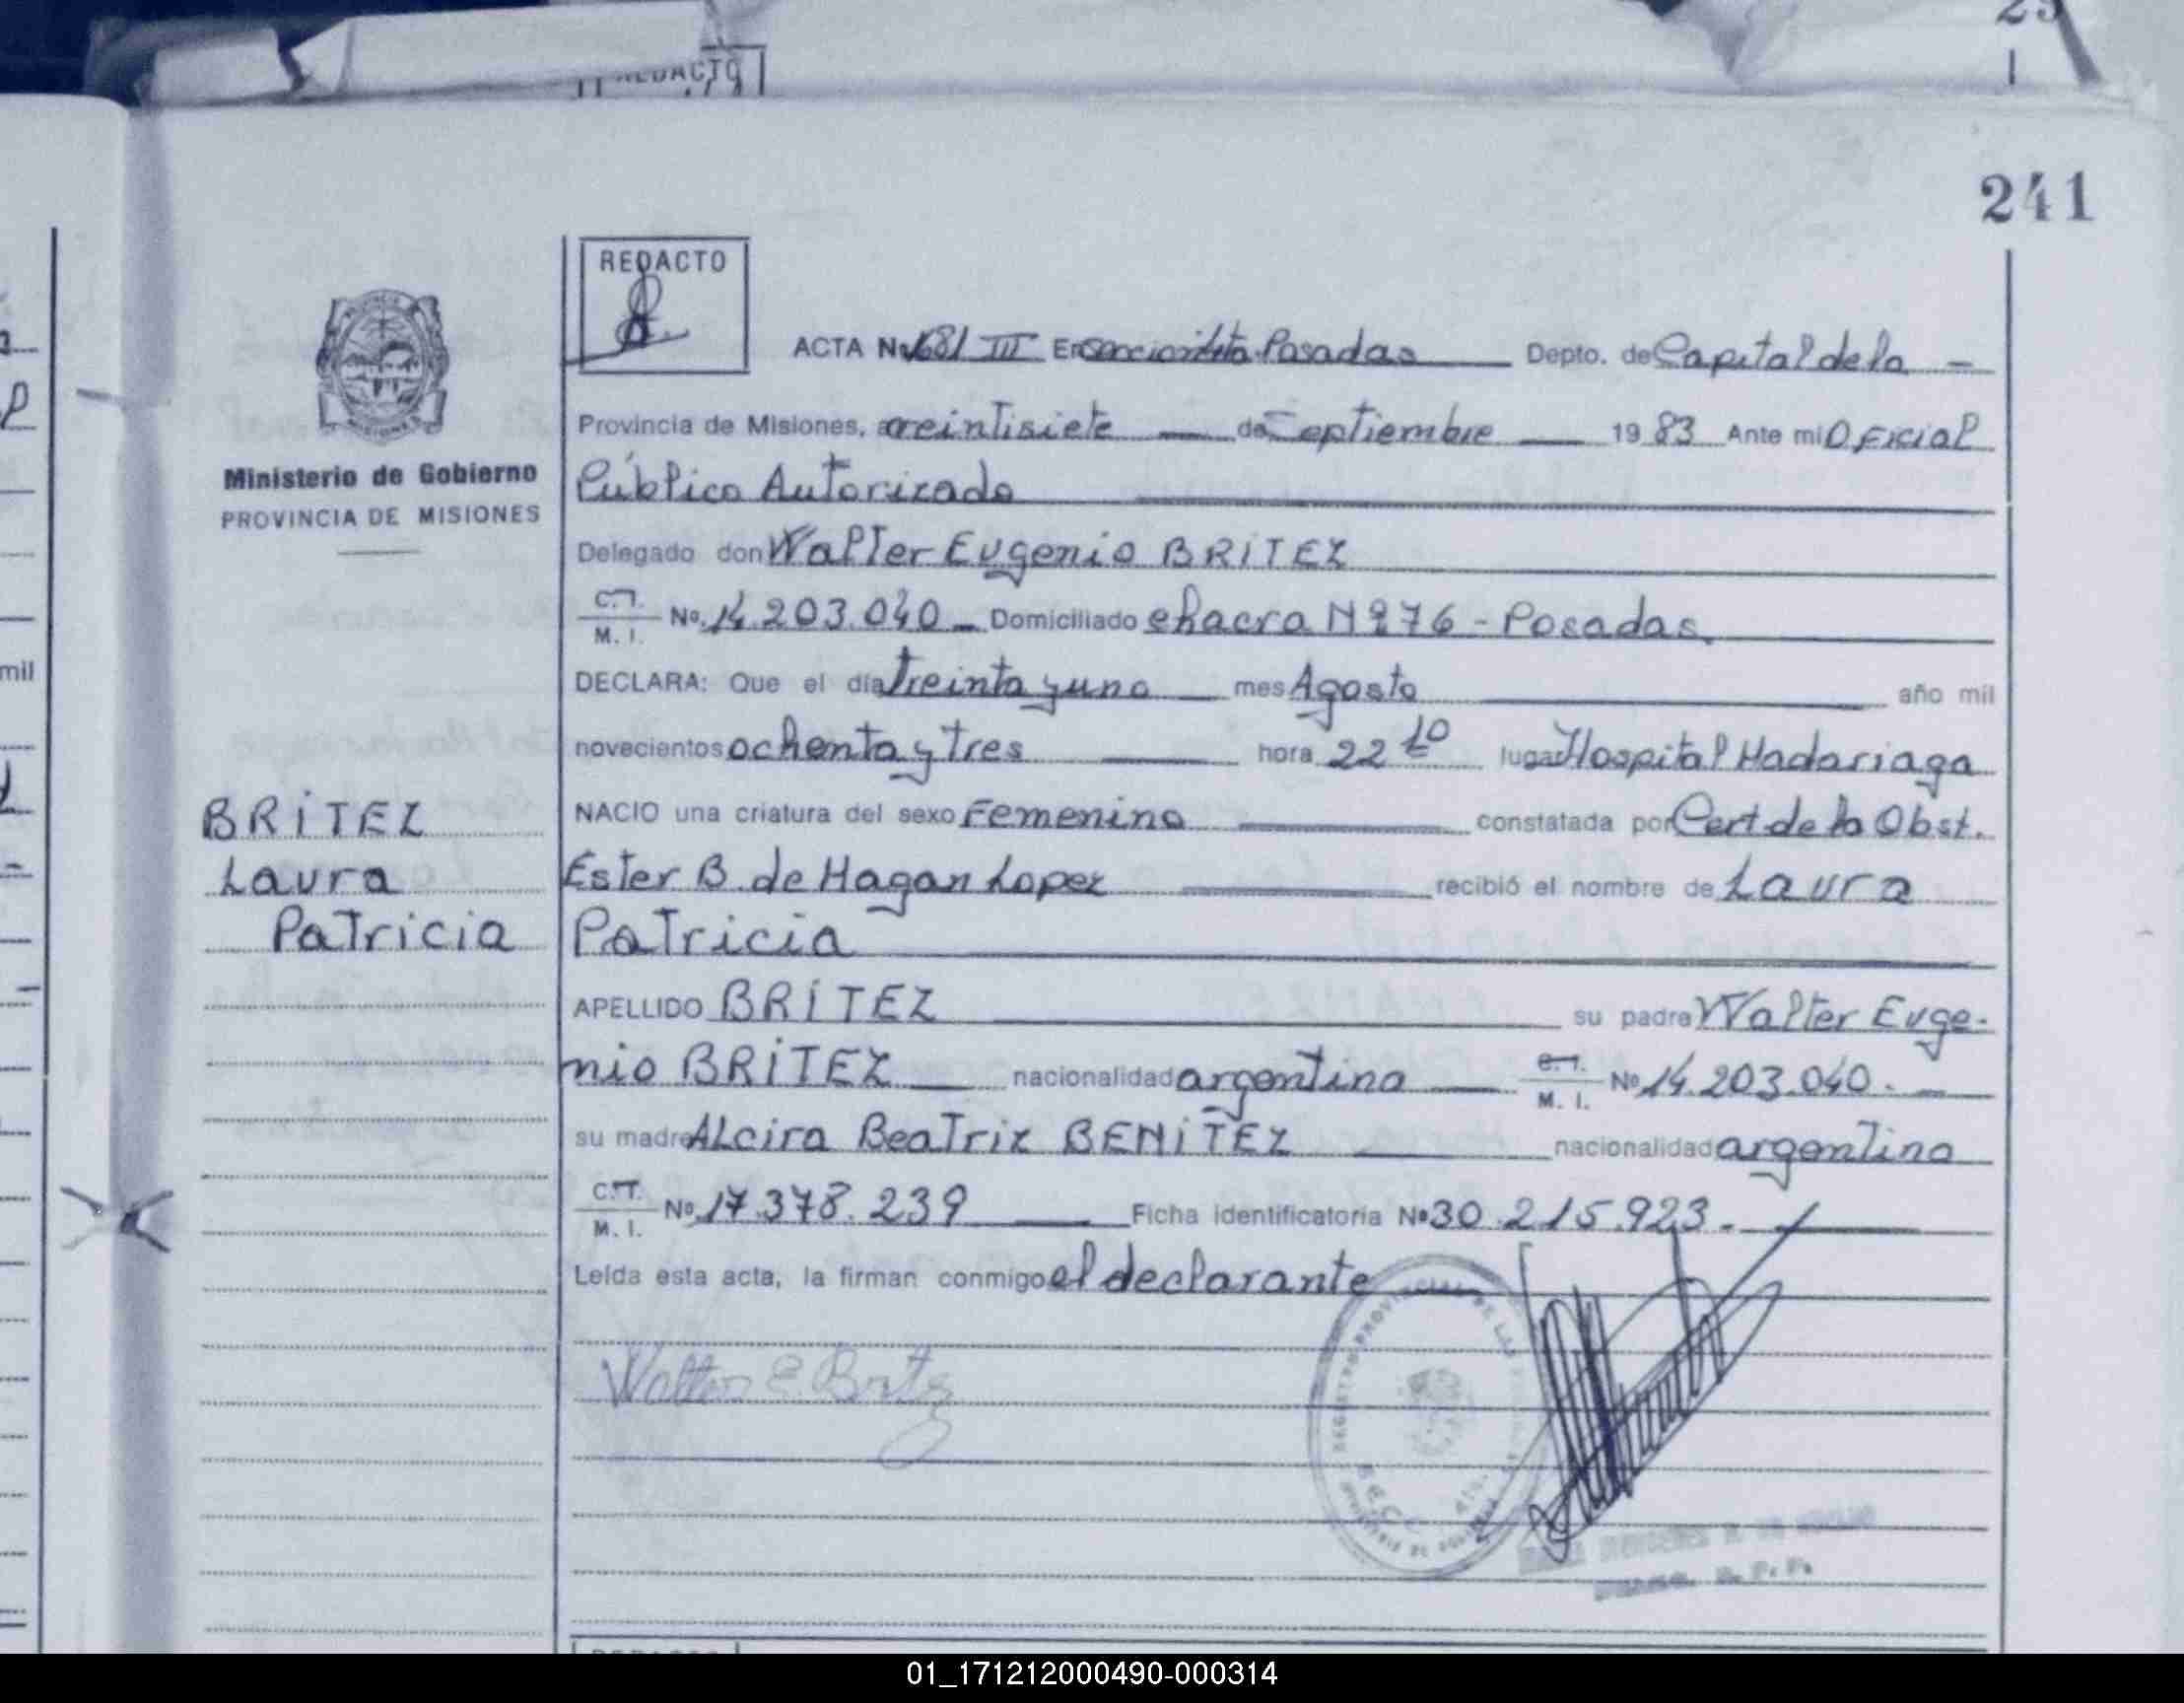 REDACTO
241
REDACTO
ACTA Nº 1681 III En sección 4ta Posadas Depto. de Capital de la
Provincia de Misiones, a veintisiete de Septiembre 1983 Ante mi Oficial
Público Autorizado
Ministerio de Gobierno
PROVINCIA DE MISIONES
Delegado don Walter Eugenio BRITEZ
C.I.
M. I. Nº. 14.203.040 Domiciliado chacra Nº 76 - Posadas.
DECLARA: Que el día treinta y uno mes Agosto año mil
novecientos ochenta y tres hora 22 10 lugar Hospital Madariaga
NACIO una criatura del sexo Femenino constatada por Cert de la Obst.
Ester B. de Hagan Lopez recibió el nombre de Laura
Patricia
BRITEZ
Laura
Patricia
APELLIDO BRITEZ su padre Walter Euge-
nio BRITEZ nacionalidad argentina C.I.
M. I. Nº 14.203.040.
su madre ALcira Beatriz BENITEZ nacionalidad argentina
C.I.
M. I. Nº. 17.378.239 Ficha identificatoria Nº 30.215.923.
Leída esta acta, la firman conmigo el declarante
Walter E. Britez
mil
01_171212000490-000314